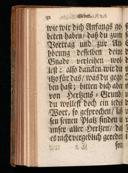 wie wir dich Anfangs ge-
beten haben / daß du zum
Vortrag und zur An-
hörung desselben deine
Gnade verleihen wol-
lest: also dancken wir dir
itzt für das / was du gege-
ben hast; bitten dich aber
von Hertzens-Grund
du wollest doch ein jedes
Wort, so gesprochen /
sen seinen Platz finden
unser aller Hertzen / daß
es nicht vergeblich geredet